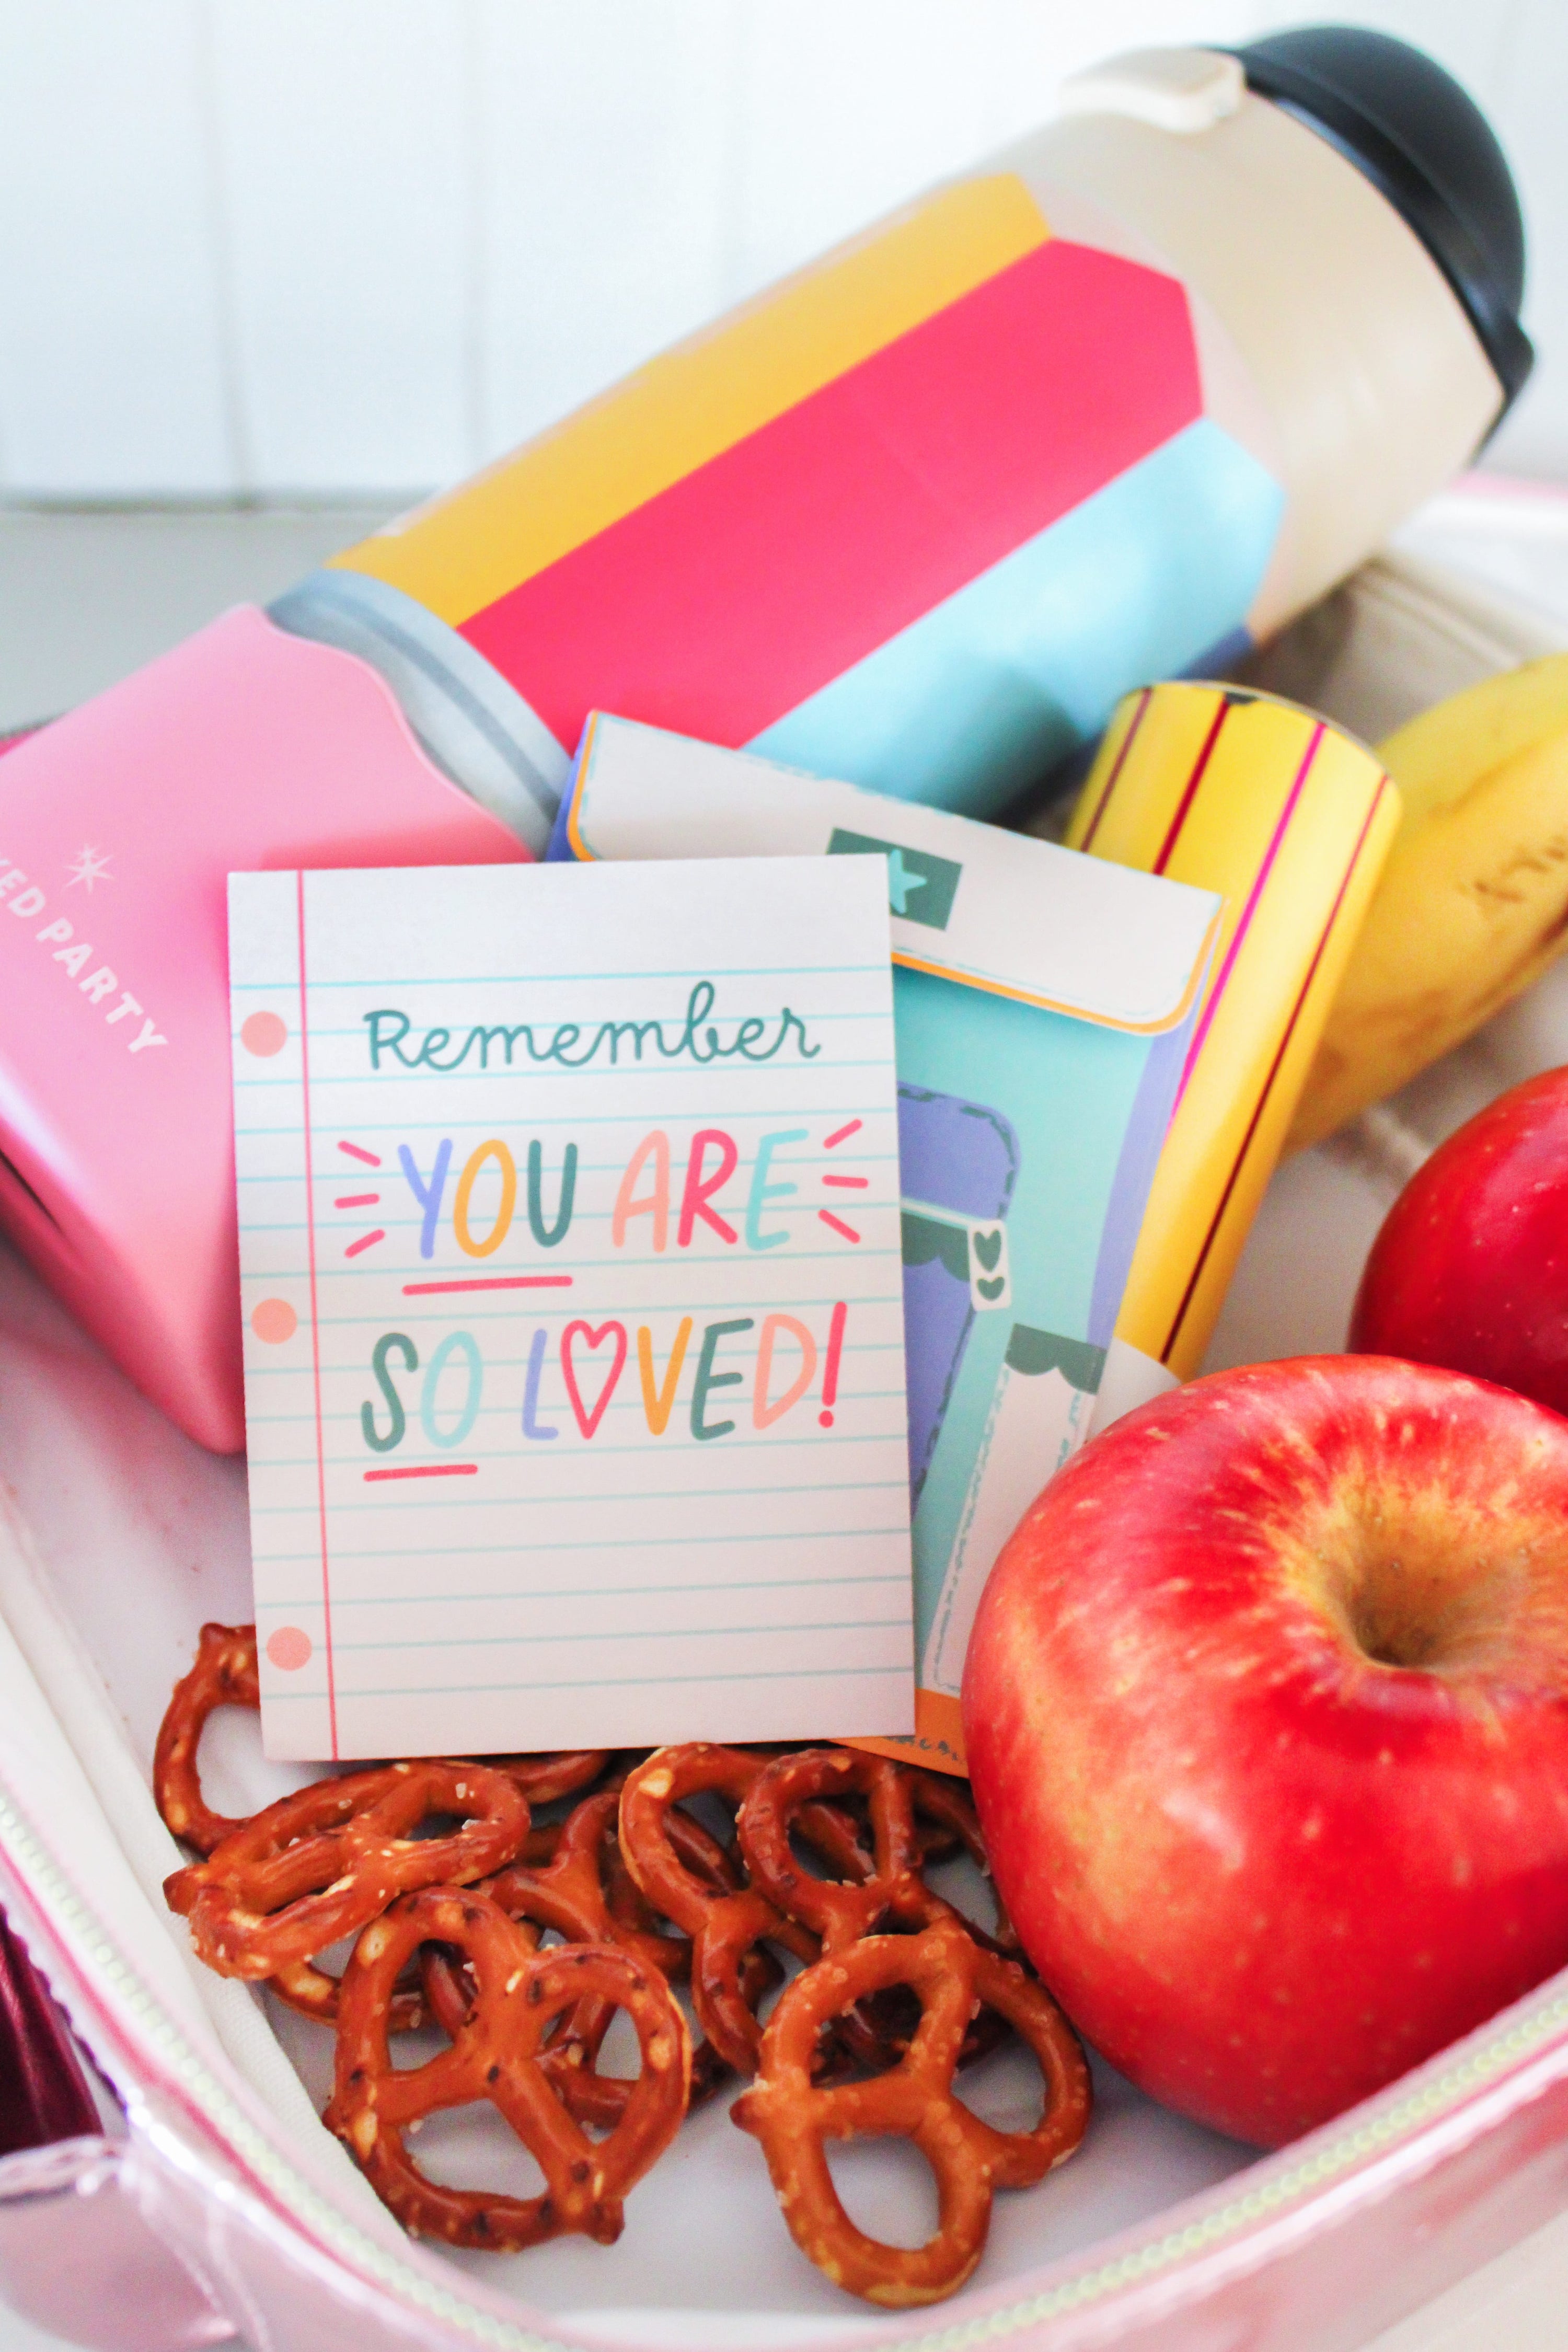 PARTY
Remember
YOU ARE
SO LOVED!